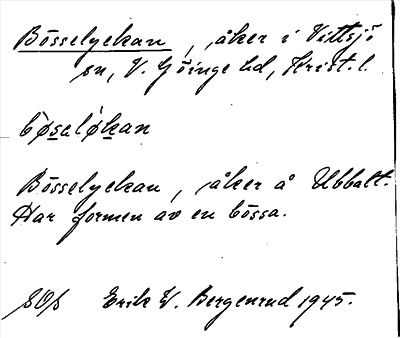 Bösselyckan, åker i Vittsjö
sn, V. Göinge hd, Krist. l.
bø̀saløkan
Bösselyckan, åker å Ubbalt.
Har formen av en bössa.
Erik W. Bergenrud 1945.